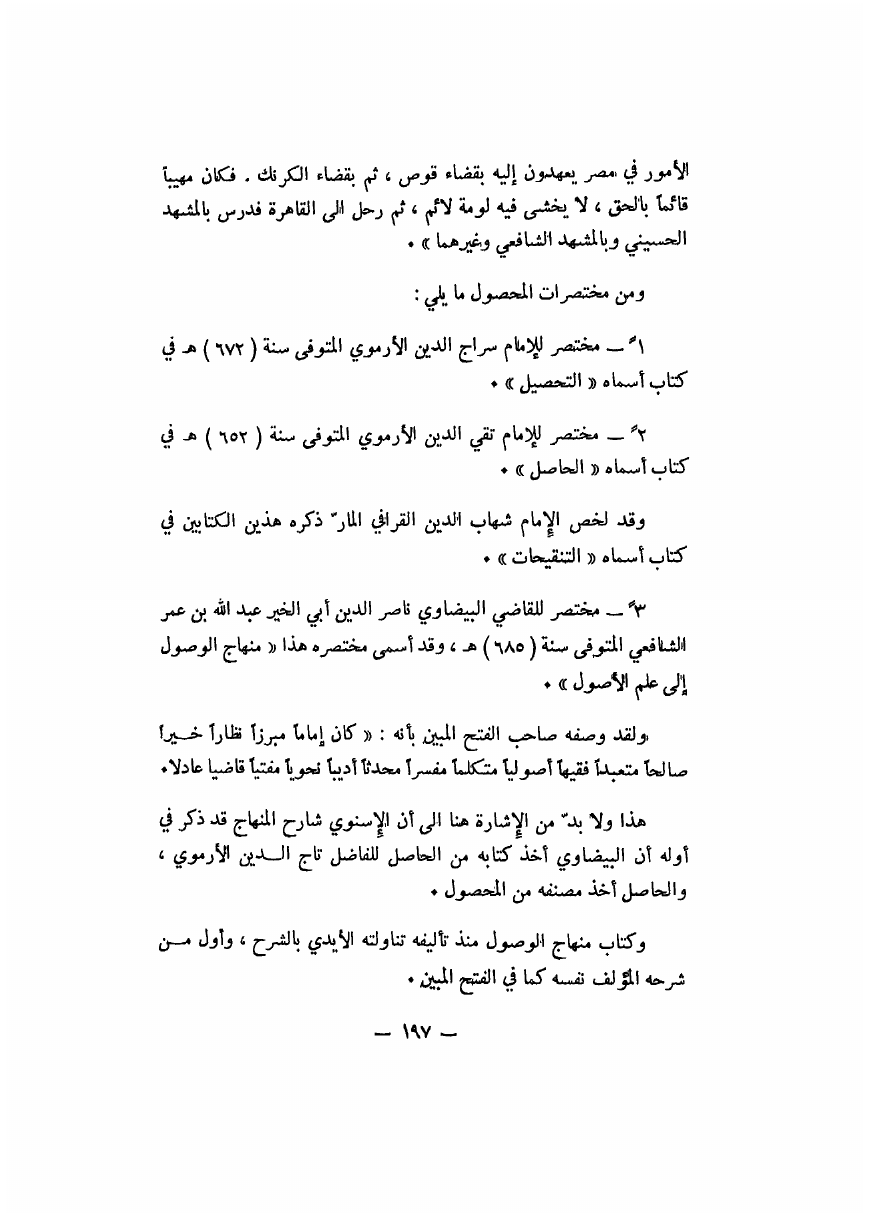 الأمور في مصر يعهدون إليه بقضاء قوص ، ثم بقضاء الكرنك . فكان مهيباً
قائماً بالحق ، لا يخشى فيه لومة لائم ، ثم رحل الى القاهرة فدرس بالمشهد
الحسيني وبالمشهد الشافعي وغيرهما » .
ومن مختصرات المحصول ما يلي :
١ً ــ مختصر للإمام سراج الدين الأرموي المتوفى سنة ( ٦٧٢ ) هـ في
كتاب أسماه « التحصيل » .
٢ً ــ مختصر للإمام تقي الدين الأرموي المتوفى سنة ( ٦٥٢ ) هـ في
كتاب أسماه « الحاصل » .
وقد لخص الإمام شهاب الدين القرافي المارّ ذكره هذين الكتابين في
كتاب أسماه « التنقيحات » .
٣ً ــ مختصر للقاضي البيضاوي ناصر الدين أبي الخير عبد الله بن عمر
الشافعي المتوفى سنة ( ٦٨٥ ) هـ ، وقد أسمى مختصره هذا « منهاج الوصول
إلى علم الأصول » .
ولقد وصفه صاحب الفتح المبين بأنه : « كان إماماً مبرزاً نظاراً خــيراً
صالحاً متعبداً فقيهاً أصولياً متكلماً مفسراً محدثاً أديباً نحوياً مفتياً قاضيا عادلا.
هذا ولا بدّ من الإشارة هنا الى أن الإسنوي شارح المنهاج قد ذكر في
أوله أن البيضاوي أخذ كتابه من الحاصل للفاضل تاج الــدين الأرموي ،
والحاصل أخذ مصنفه من المحصول .
وكتاب منهاج الوصول منذ تأليفه تناولته الأيدي بالشرح ، وأول مــن
شرحه المؤلف نفسه كما في الفتح المبين .
ــ ١٩٧ ــ